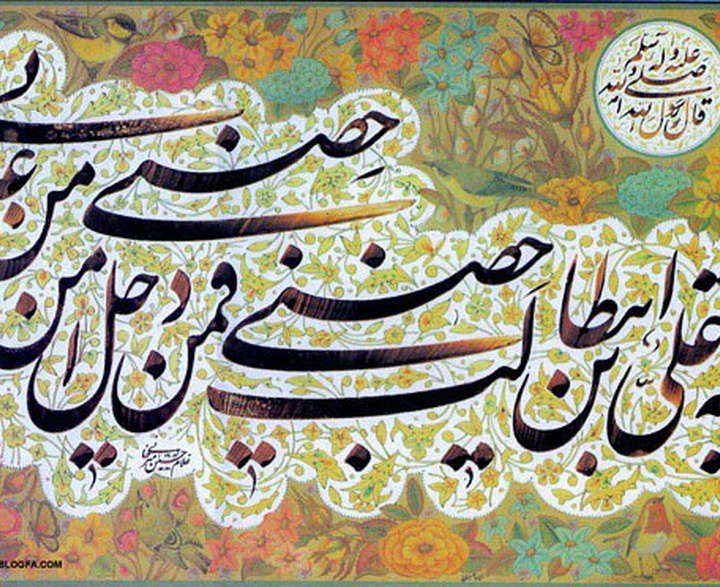 قال رسول الله صلی الله علیه و آله و سلم
علی بن ابیطالب حصنی فمن دخل
حصنی امن من
BLOGFA.COM